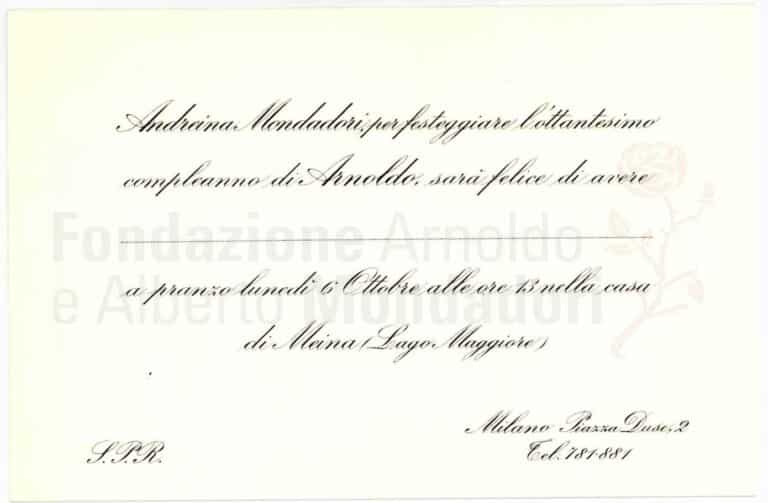 Andreina Mondadori, per festeggiare l'ottantesimo
compleanno di Arnoldo, sarà felice di avere
Fondazione Arnoldo
e Alberto Mondadori
a pranzo lunedì 6 Ottobre alle ore 13 nella casa
di Meina (Lago Maggiore)
Milano Piazza Duse, 2
S.P.R.
Tel. 781-881